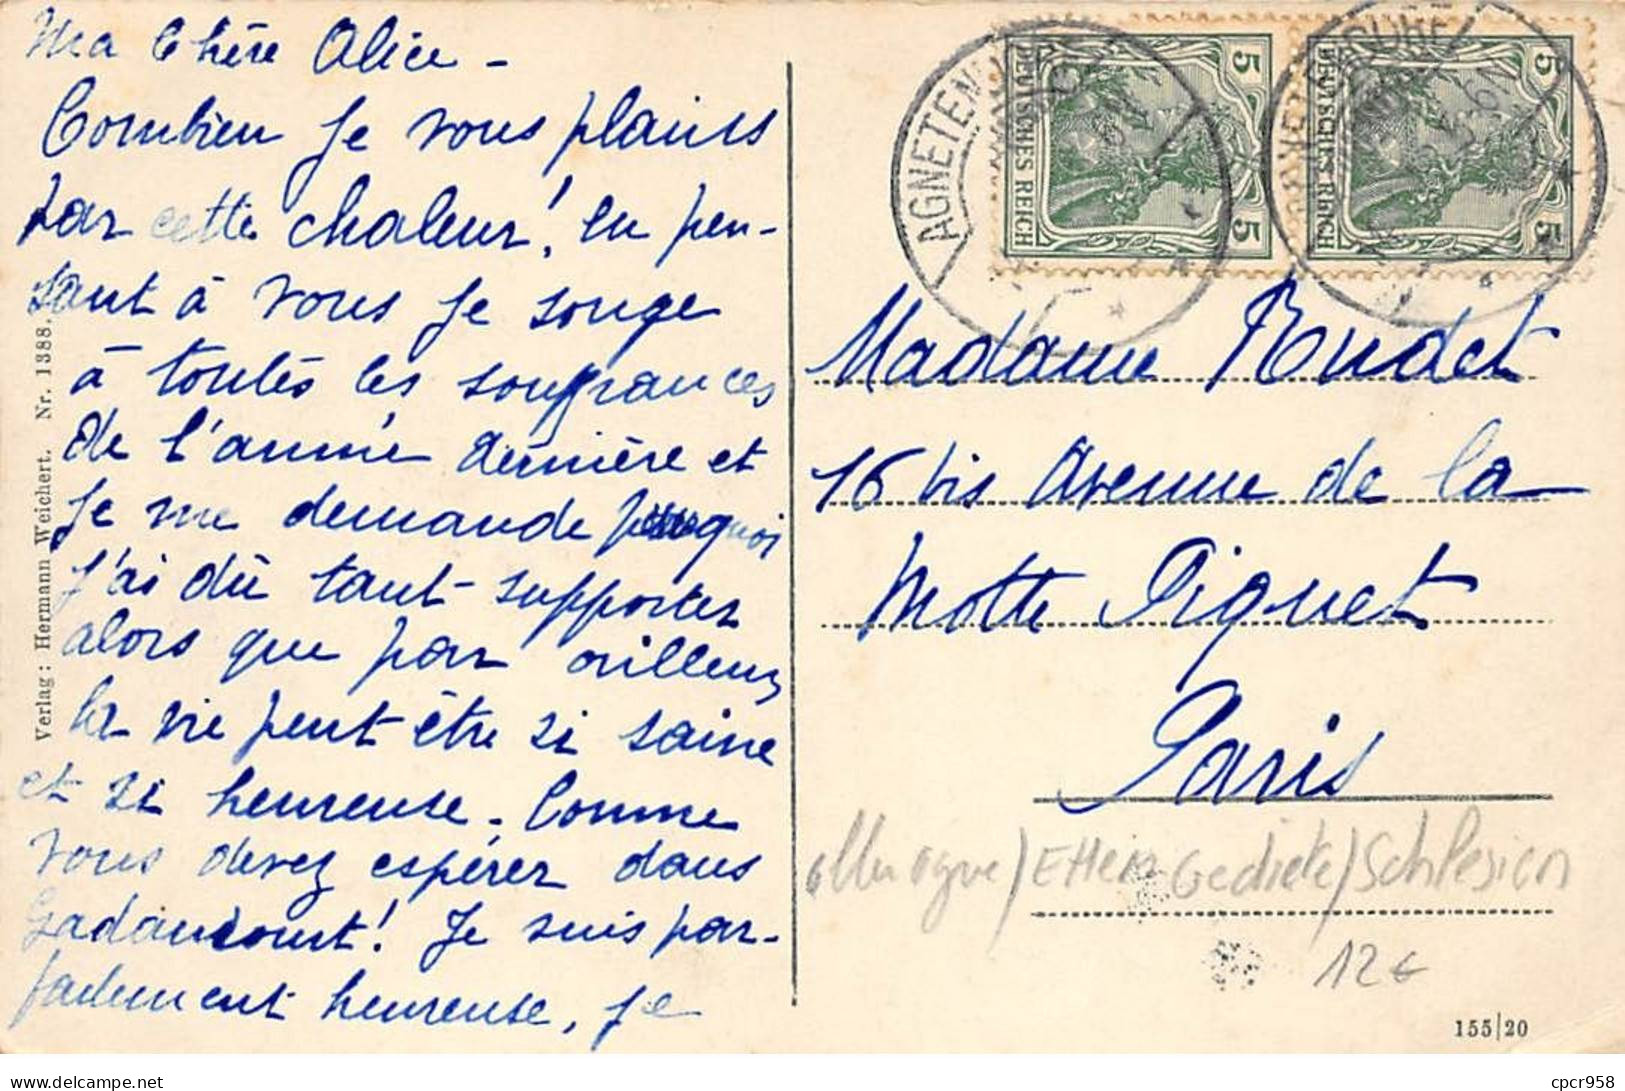 Ma Chère Alice -
Combien je vous plains
par cette chaleur! En pen-
sant à vous je songe
à toutes les souffrances
de l'année dernière et
je me demande pourquoi
j'ai dû tant supporter
alors que par ailleurs
la vie peut être si saine
et si heureuse. Comme
vous devez espérer dans
Gadancourt! Je suis par-
faitement heureuse, je
Verlag: Hermann Weichert. Nr. 1388.
AGNETEN
DEUTSCHES REICH
5
5
DEUTSCHES REICH
5
5
Madame Rudet
16 bis Avenue de la
Motte Piquet
Paris
Allemagne / Ehem Gediete / Schlesien
12€
155|20
cpcr958